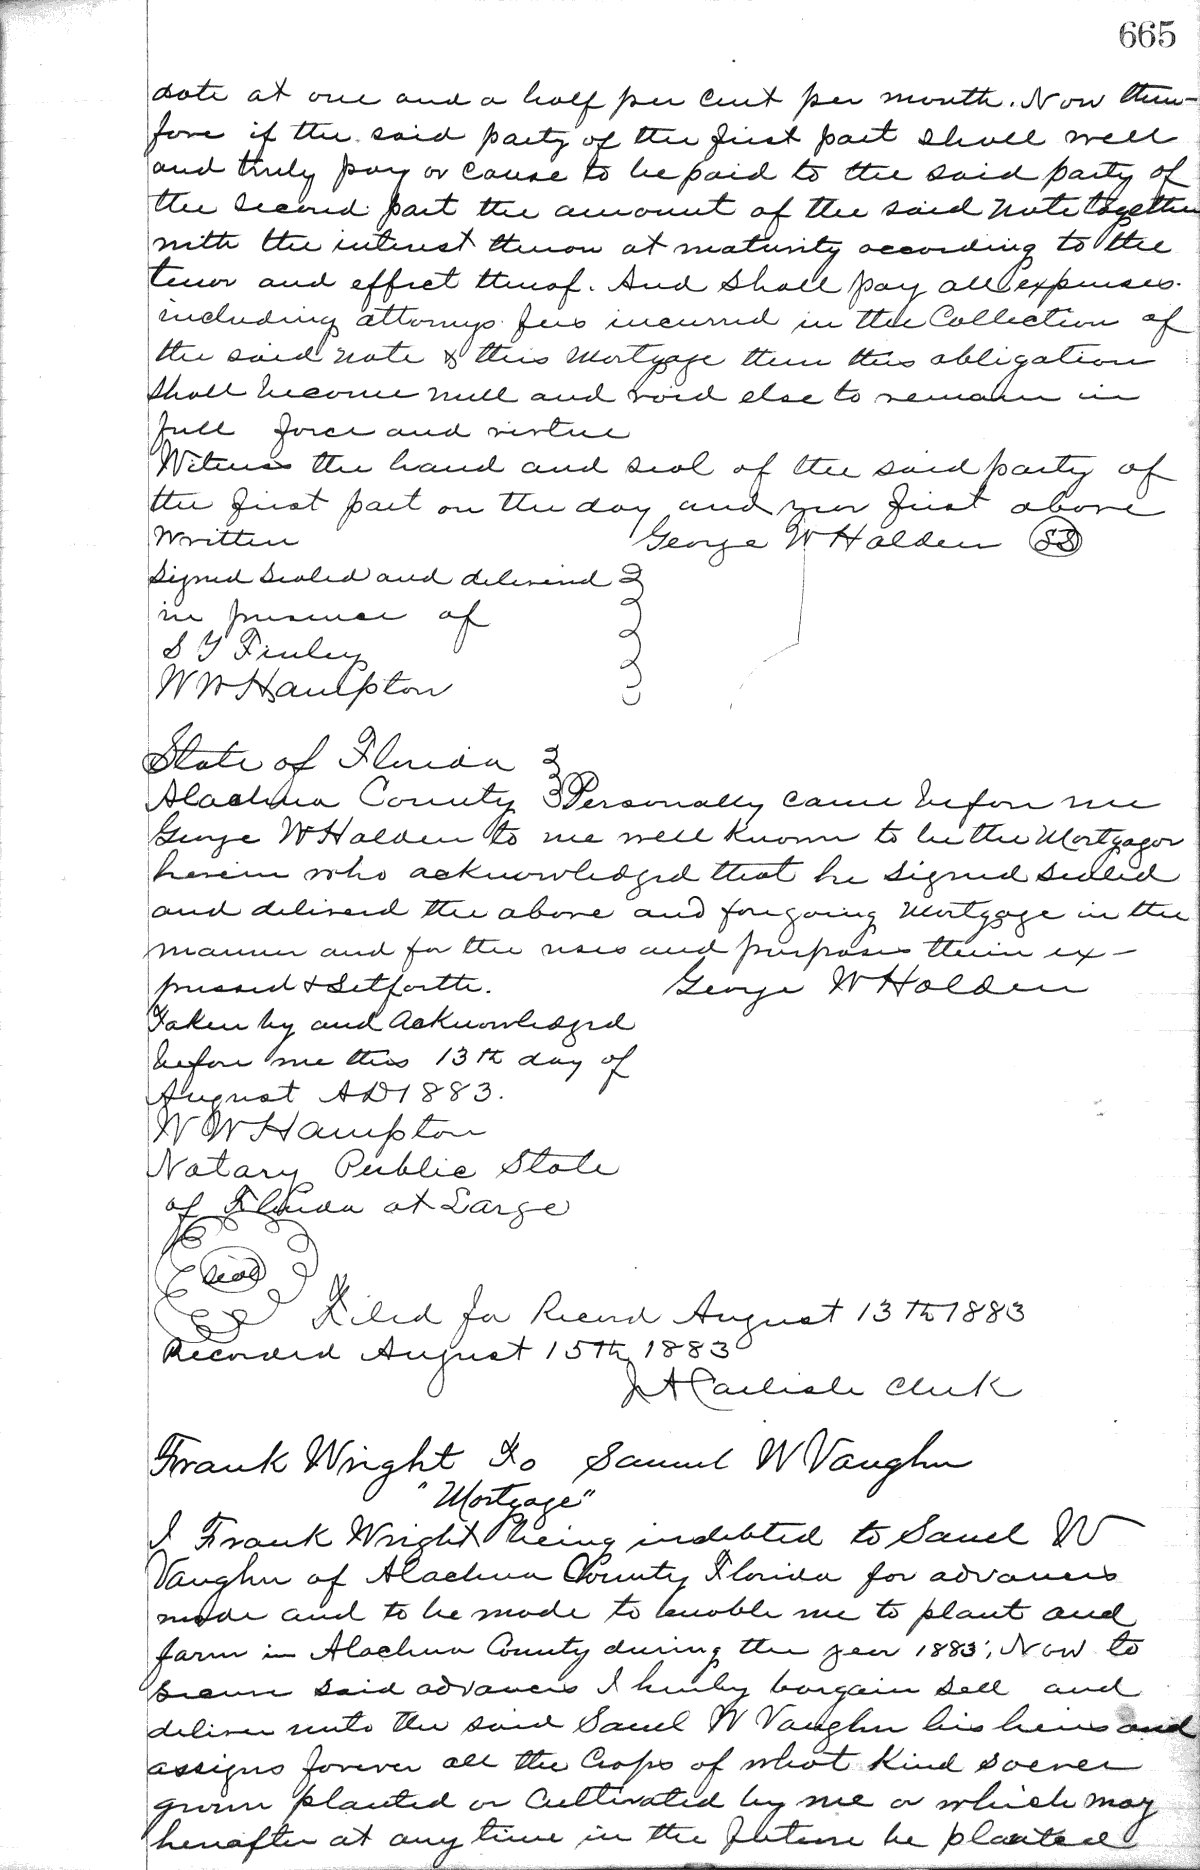 665
date at one and a half per cent per month. Now there-
fore if the said party of the first part shall well
and truly pay or cause to be paid to the said party of
the second part the amount of the said note together
with the interest thereon at maturity according to the
tenor and effect thereof. And shall pay all expenses
including attorneys fees incurred in the Collection of
the said note & this Mortgage then this obligation
shall become null and void else to remain in
full force and virtue
Witness the hand and seal of the said party of
the first part on the day and year first above
written George W Holden SS
Signed Sealed and delivered
in presence of
S Y Finley
W W Hampton
State of Florida
Alachua County Personally came before me
George W Holden to me well known to be the Mortgagor
herein who acknowledged that he signed sealed
and delivered the above and foregoing Mortgage in the
manner and for the uses and purposes therein ex-
pressed & Setforth. George W Holden
Taken by and Acknowledged
before me this 13th day of
August AD 1883.
W W Hampton
Notary Public State
of Florida at Large
Seal
Filed for Record August 13th 1883
Recorded August 15th 1883
J A Carlisle Clerk
Frank Wright To Samuel W Vaughn
"Mortgage"
I Frank Wright being indebted to Saml W
Vaughn of Alachua County Florida for advances
made and to be made to enable me to plant and
farm in Alachua County during the year 1883; Now to
secure said advances I hereby bargain sell and
deliver unto the said Saml W Vaughn his heirs and
assigns forever all the Crops of what Kind soever
grown planted or Cultivated by me or which may
hereafter at any time in the future be planted